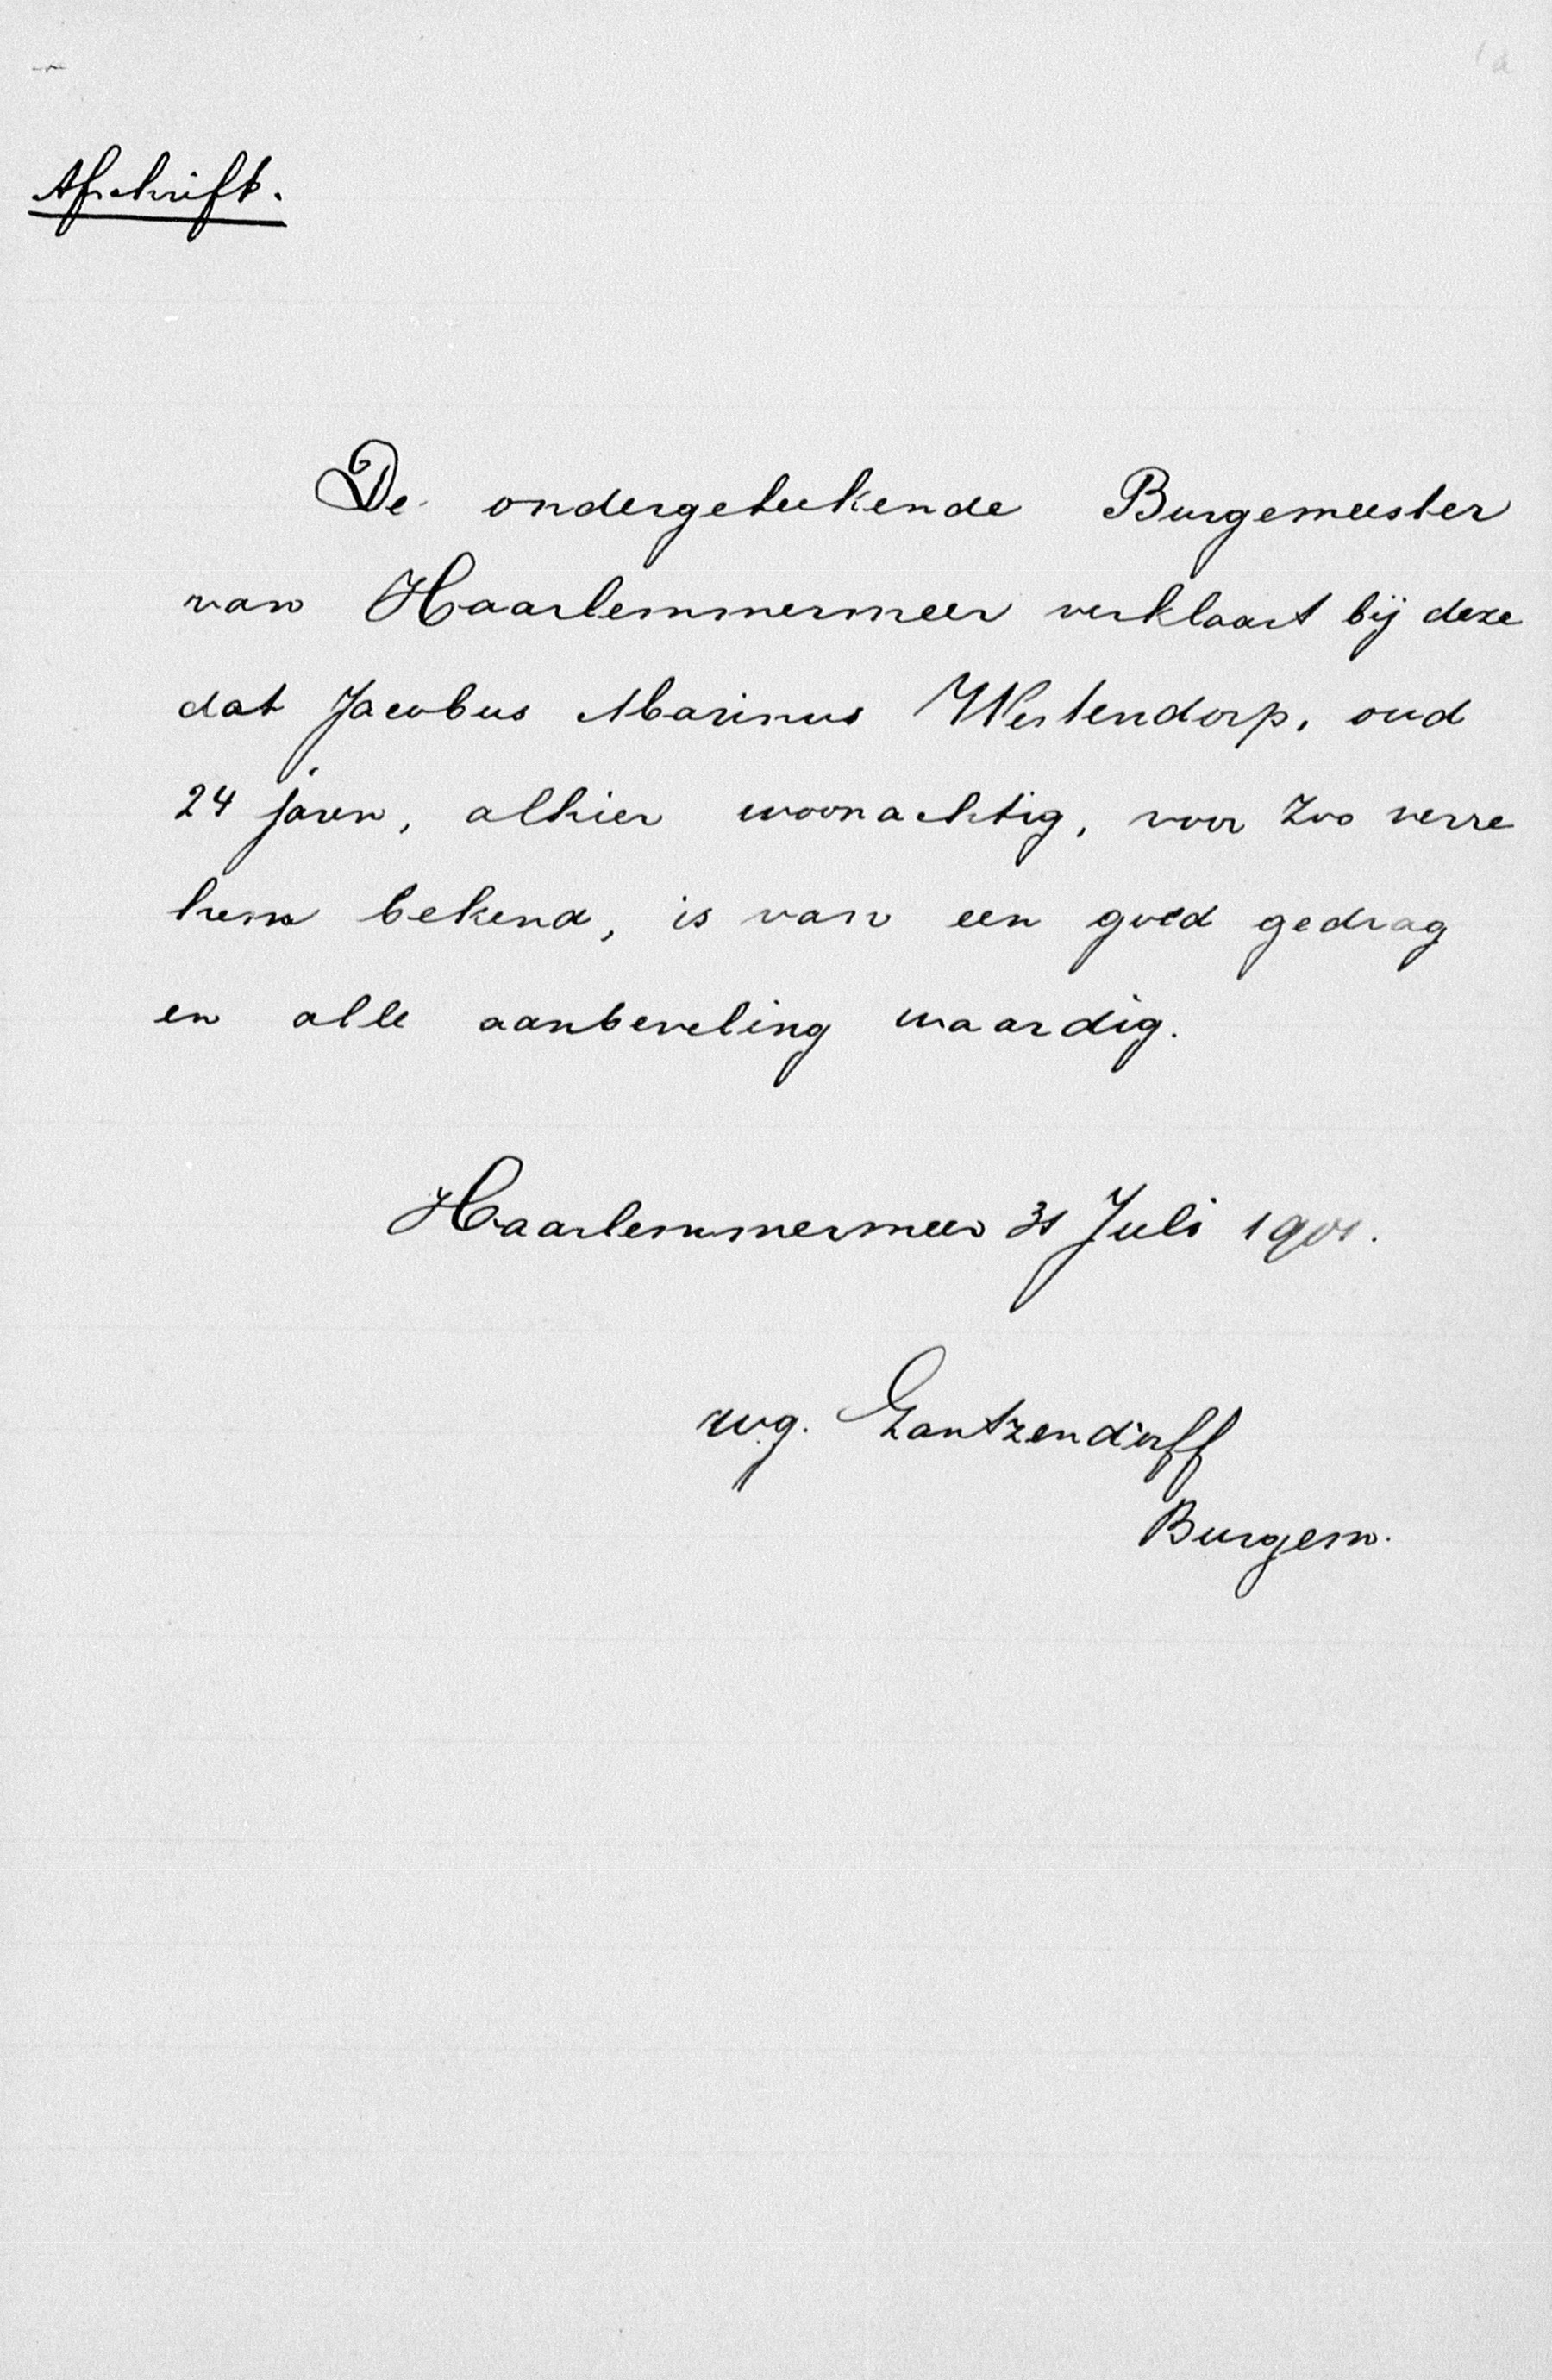 Afschrift.
De ondergeteekende Burgemeester
van Haarlemmermeer verklaart bij deze
dat Jacobus Marinus Westendorp, oud
24 jaren, alhier woonachtig, voor zoo verre
hem bekend, is van een goed gedrag
en alle aanbeveling waardig.
Haarlemmermeer 31 Juli 1901.
w.g. Gantzendörff
Burgem.